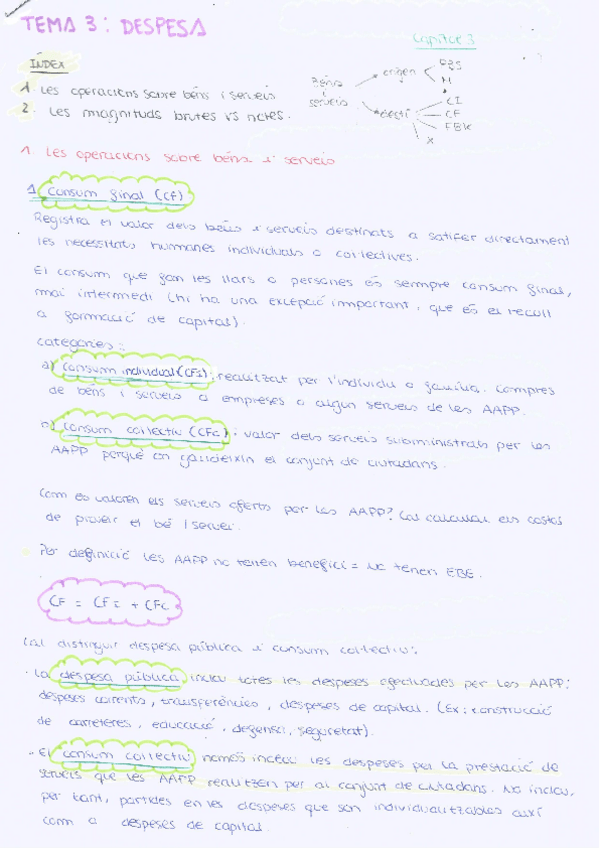 TEMA 3: DESPESA
Capítol 3
ÍNDEX
1. Les operacions sobre béns i serveis
2. Les magnituds brutes vs netes.
Béns i serveis
origen
M
destí
CI
CF
FBK
X
1. Les operacions sobre béns i serveis
1 Consum final (CF)
Registra el valor dels béns i serveis destinats a satifer directament
les necessitats humanes individuals o col·lectives.
El consum que fan les llars o persones és sempre consum final,
mai intermedi (hi ha una excepció important, que és el recull
a formació de capital).
categories:
a) Consum individual (CFi): realitzat per l'individu o família. Compres
de béns i serveis a empreses o algun serveis de les AAPP.
b) Consum col·lectiu (CFc): valor dels serveis subministrats per les
AAPP perquè en gaudeixin el conjunt de ciutadans.
Com es valoren els serveis oferts per les AAPP? Cal calcular els costos
de proveir el bé / servei.
Per definició les AAPP no tenen benefici = No tenen EBE.
CF = CFi + CFc
Cal distingir despesa pública i consum col·lectiu:
· La despesa pública inclou totes les despeses efectuades per les AAPP:
despeses corrents, transferències, despeses de capital. (Ex: construcció
de carreteres, educació, defensa, seguretat).
· El consum col·lectiu només inclou les despeses per la prestació de
serveis que les AAPP realitzen per al conjunt de ciutadans. No inclou,
per tant, partides en les despeses que son individualitzables així
com a despeses de capital.